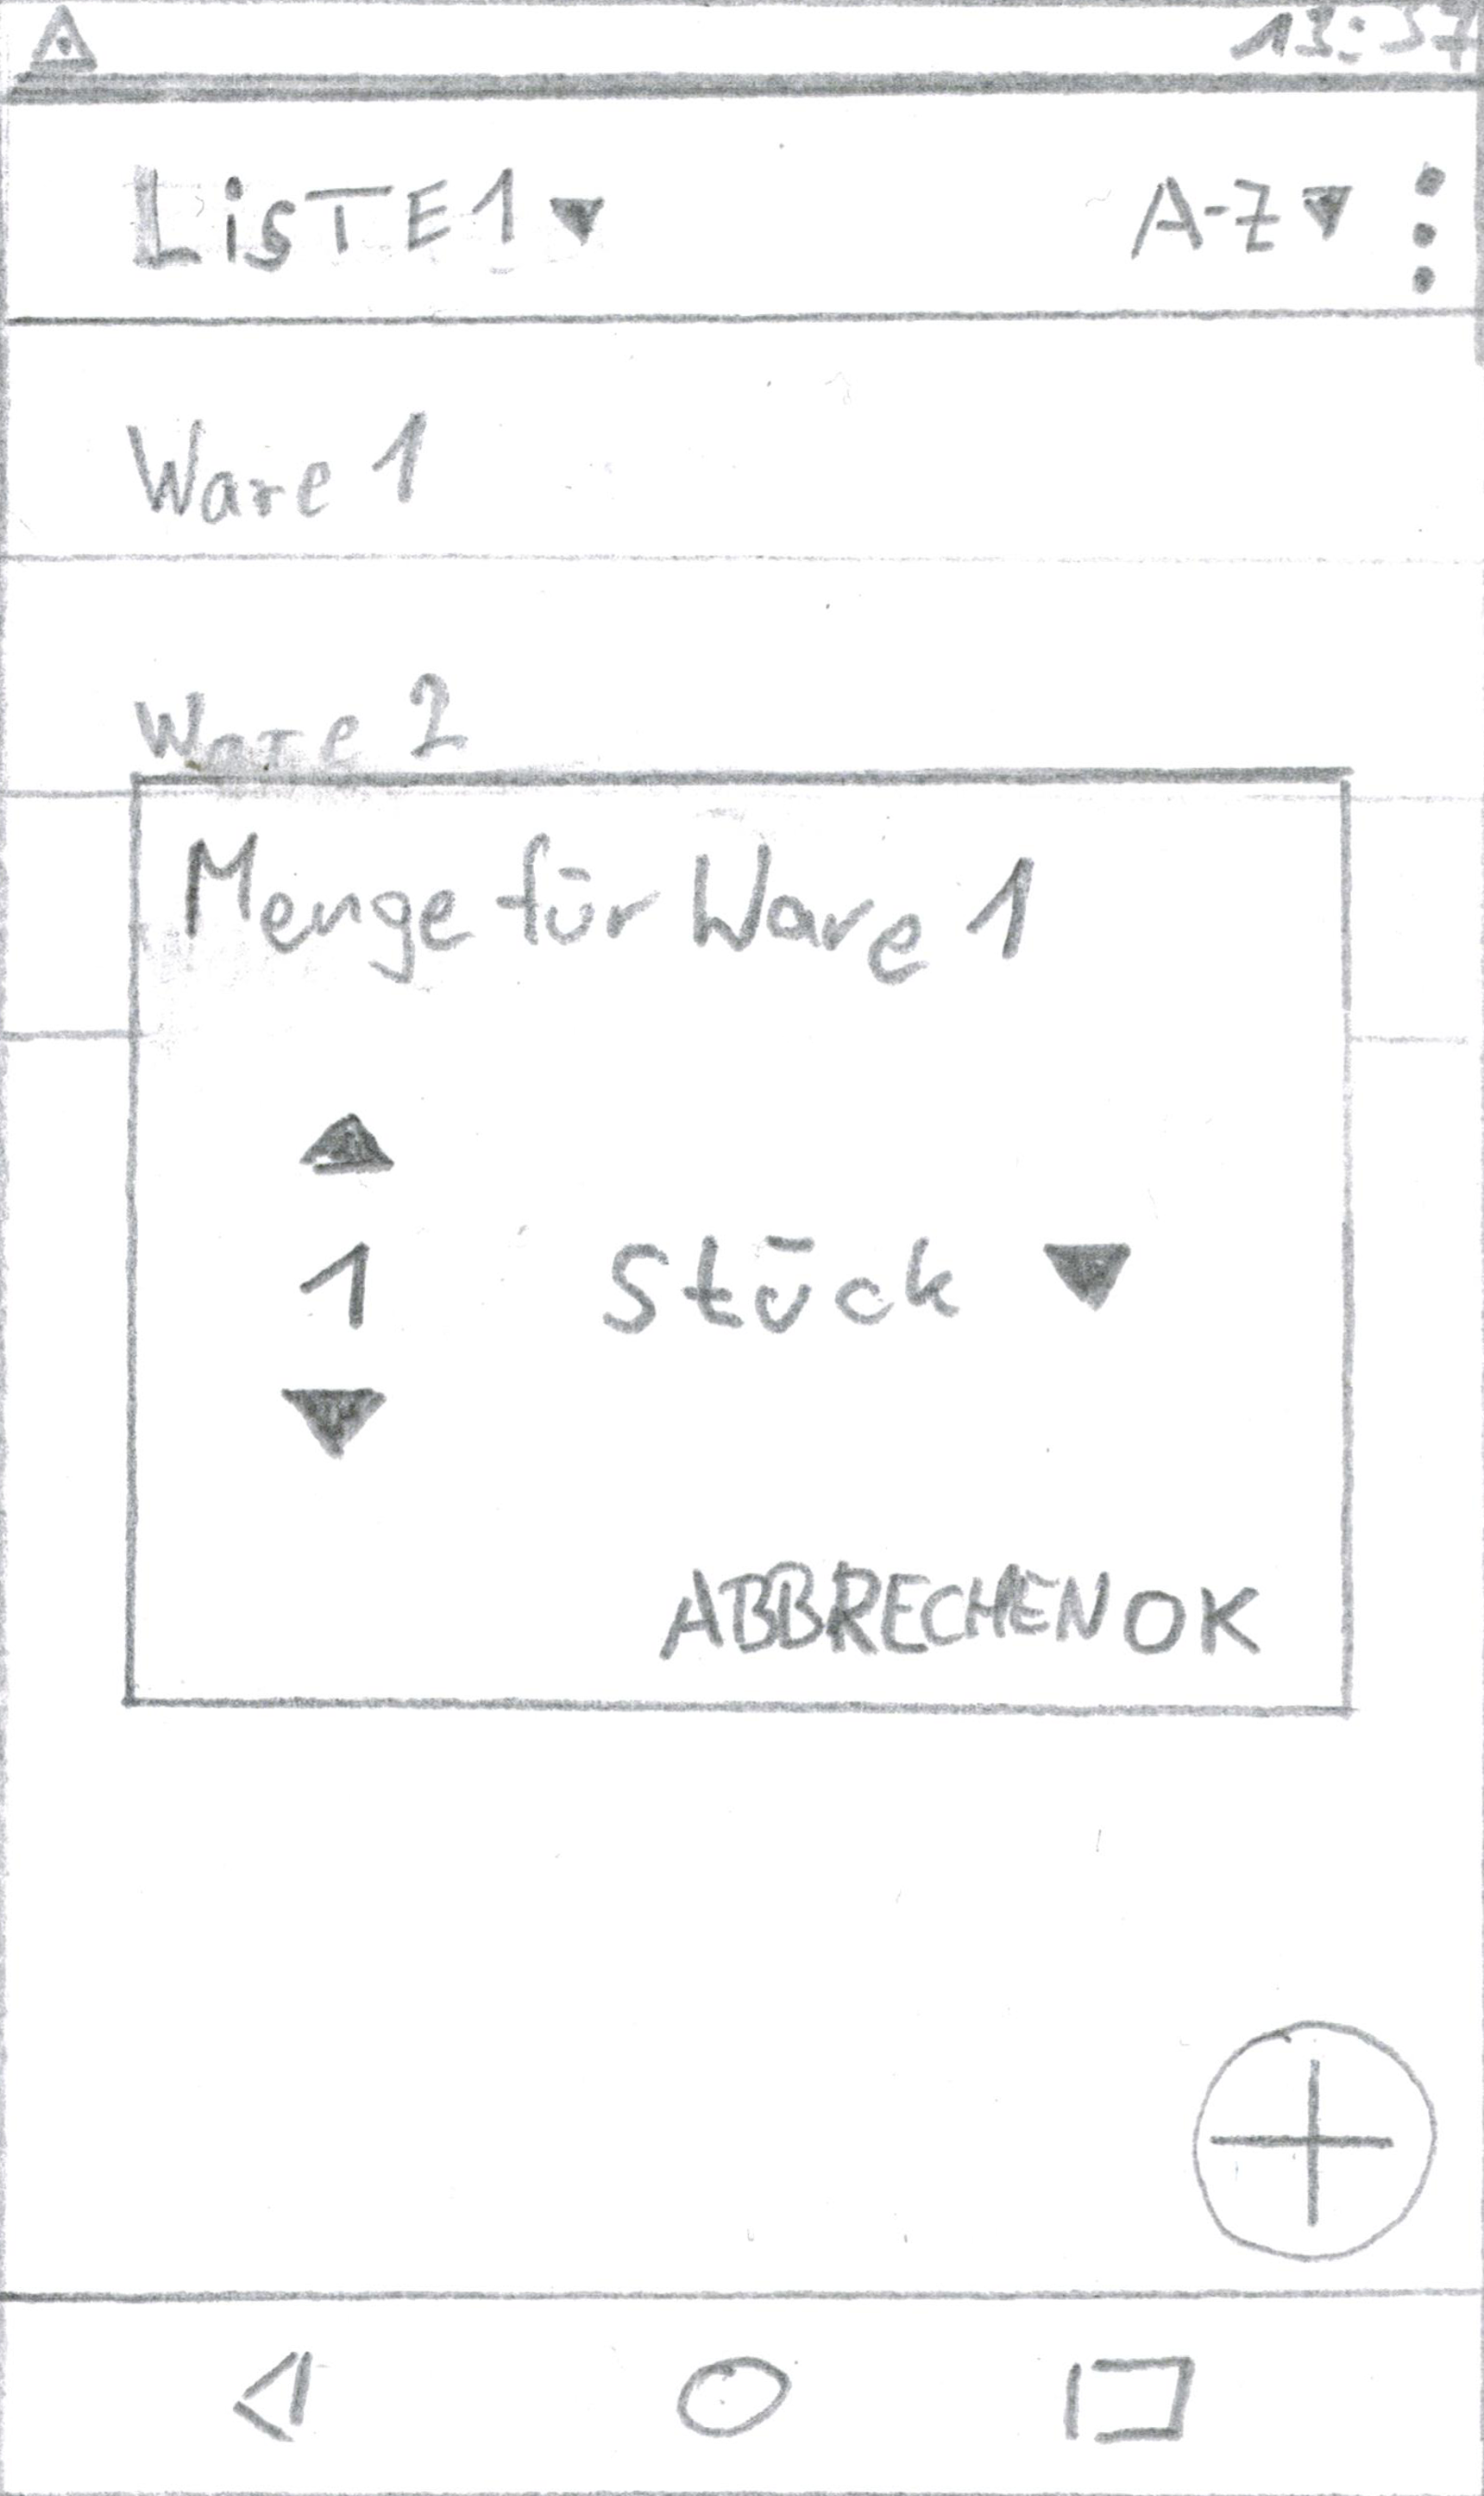 13:57
LiSTE1 A-Z
Ware 1
Ware 2
Menge für Ware 1
1 Stück
ABBRECHEN OK